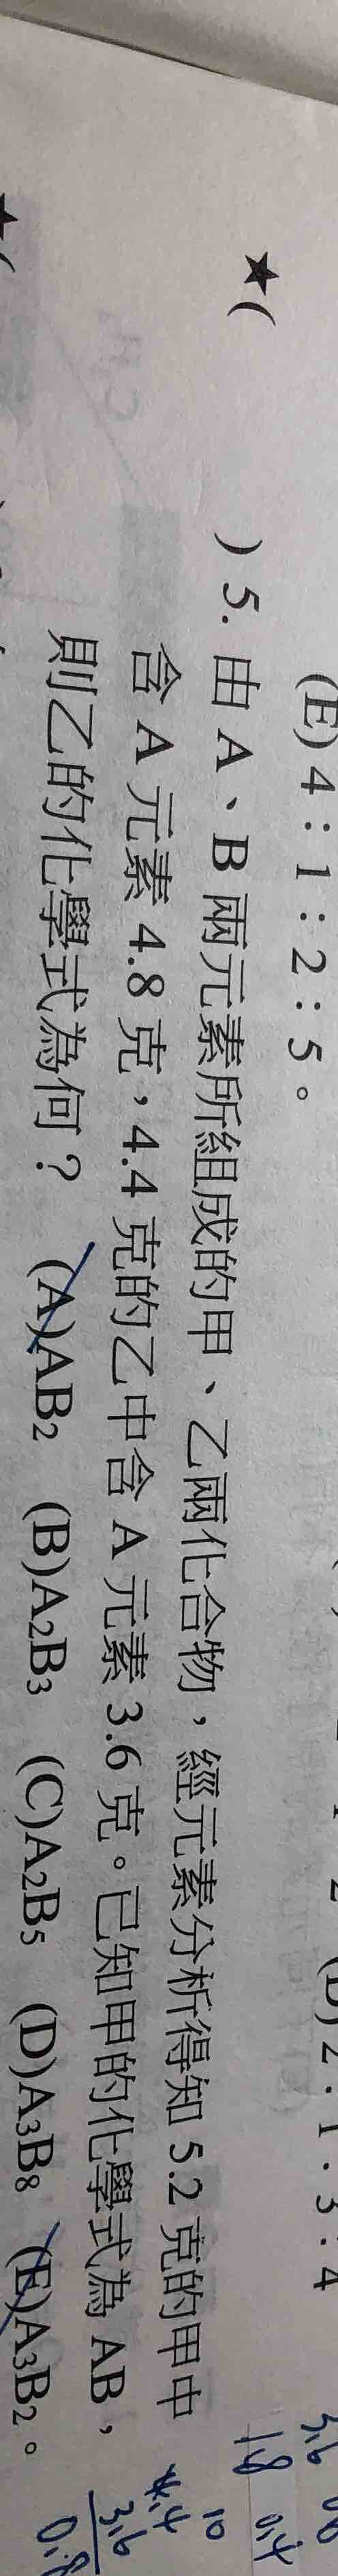 (E) 4：1：2：5。
★(　　) 5. 由 A、B 兩元素所組成的甲、乙兩化合物，經元素分析得知 5.2 克的甲中
含 A 元素 4.8 克，4.4 克的乙中含 A 元素 3.6 克。已知甲的化學式為 AB，
則乙的化學式為何？ (A)AB₂ (B)A₂B₃ (C)A₂B₅ (D)A₃B₈ (E)A₃B₂。
3.6
1.8 0.4
10
4.4
3.6
0.8